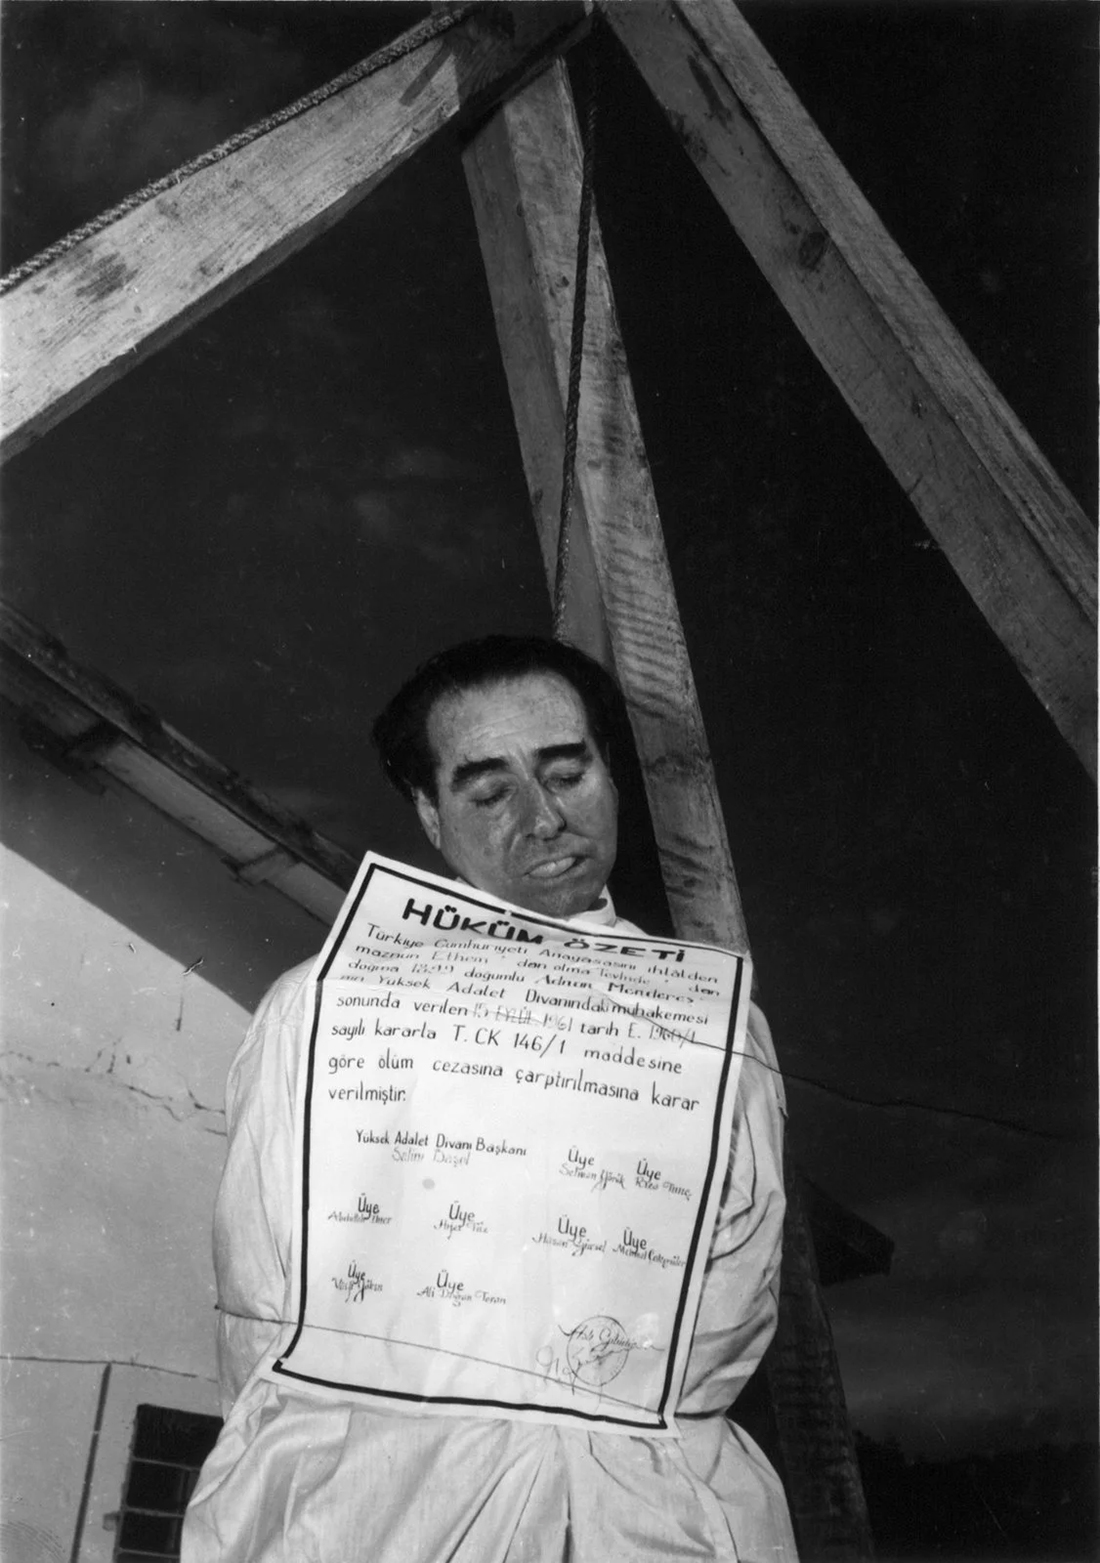 HÜKÜM ÖZETİ
Türkiye Cumhuriyeti Anayasasını ihlâlden
maznun Ethem, dan olma Tevfide, den
doğma 1899 doğumlu Adnan Menderes
nin Yüksek Adalet Divanındaki muhakemesi
sonunda verilen 15 EYLÜL 1961 tarih E. 1960/1
sayılı kararla T. CK 146/1 maddesine
göre ölüm cezasına çarptırılmasına karar
verilmiştir.
Yüksek Adalet Divanı Başkanı Üye Üye
Salim Başol
Üye Üye Üye Üye
Üye Üye
Ali Doğan Toran